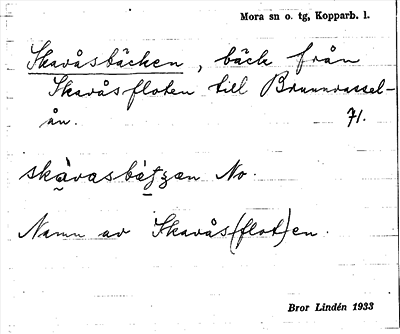 Mora sn o. tg, Kopparb. l.
Skavåsbäcken, bäck från
Skavåsfloten till Brunnvassel-
ån. 71.
No.
Namn av Skavås(flot)en.
Bror Lindén 1933